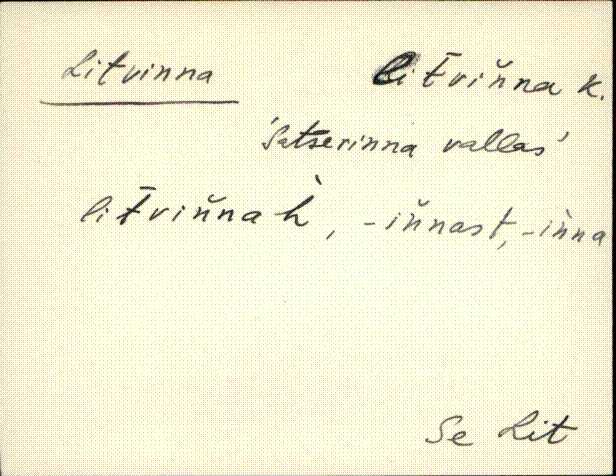 Litvinna   lit̄vin̆na k.
'Satserinna vallas'
lit̄vin̆nah̀, -in̆nast, -ìnna
Se Lit